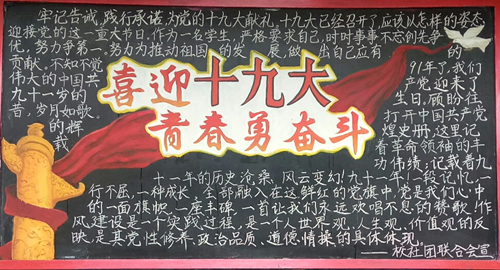 牢记告诫,践行承诺,为党的十九大献礼,十九大已经召开了,应该以怎样的姿态
迎接党的这一重大节日,作为一名学生,严格要求自己,时时事事不忘创先争
优,努力争第一,努力为推动祖国的发展做出自己应有的
贡献。不知不觉
伟大的中国共
九十一岁的
昔,岁月如歌。
的辉
载
91年了,我们
产党迎来了
生日,顾盼往
打开中国共产党
煌史册,这里记
着革命领袖的丰
功伟绩;记载着九
喜迎十九大
青春勇奋斗
十一年的历史沧桑,风云变幻!九十一年!一段记忆,一
行不屈,一种成长,全部融入在这鲜红的党旗中,党是我们心中
的一面旗帜,一座丰碑,一首让我们永远欢唱不息的赞歌!作
风建设是一个实践过程,是一个人世界观,人生观,价值观的反
映,是其党性修养、政治品质、道德情操的具体体现。
社团联合会宣